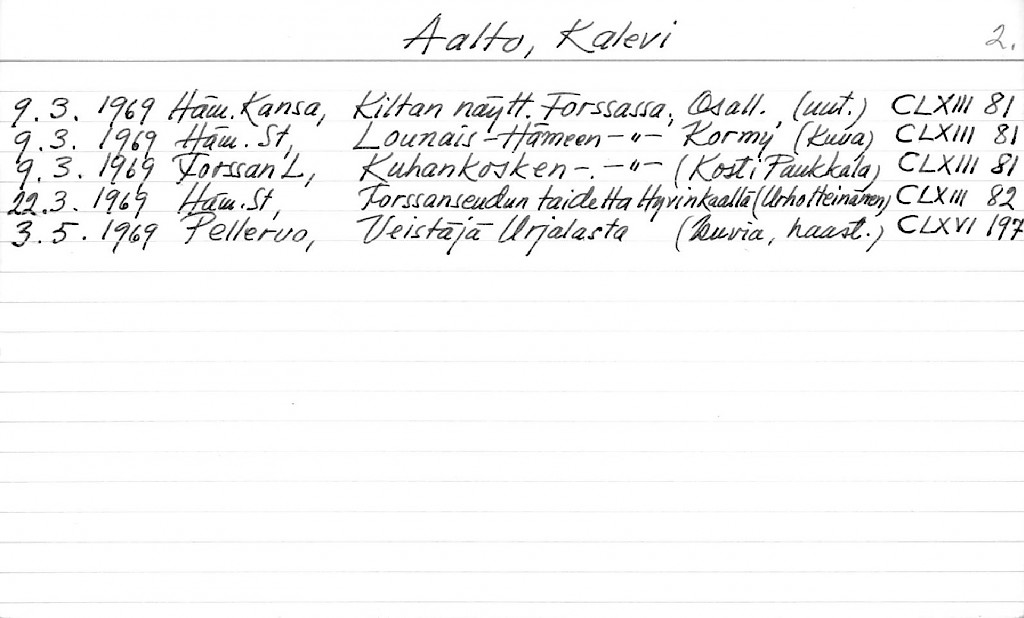 Aalto, Kalevi 2.
9.3.1969 Häm. Kansa, Killan näytt. Forssassa, Osall. (uut.) CLXIII 81
9.3.1969 Häm. St, Lounais-Hämeen -"- Kormy (kuva) CLXIII 81
9.3.1969 Forssan L, Kuhankosken -.-"- (Kosti Paukkala) CLXIII 81
22.3.1969 Häm. St, Forssanseudun taidetta Hyvinkäällä (Urho Heinänen) CLXIII 82
3.5.1969 Pellervo, Veistäjä Urjalasta (kuvia, haast.) CLXVI 197